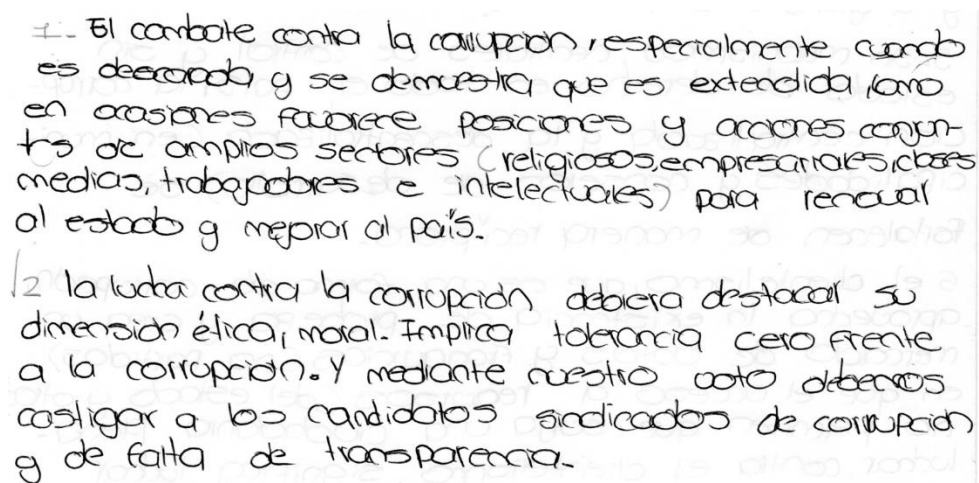 1- El combate contra la corrupción, especialmente cuando
es descarada y se demuestra que es extendida, como
en ocasiones favorece posiciones y acciones conjun-
tas de amplios sectores (religiosos, empresariales, clases
medias, trabajadores e intelectuales) para renovar
al estado y mejorar al país.
2 la lucha contra la corrupción debiera destacar su
dimensión ética, moral. Implica tolerancia cero frente
a la corrupción. Y mediante nuestro voto debemos
castigar a los candidatos sindicados de corrupción
y de falta de transparencia.